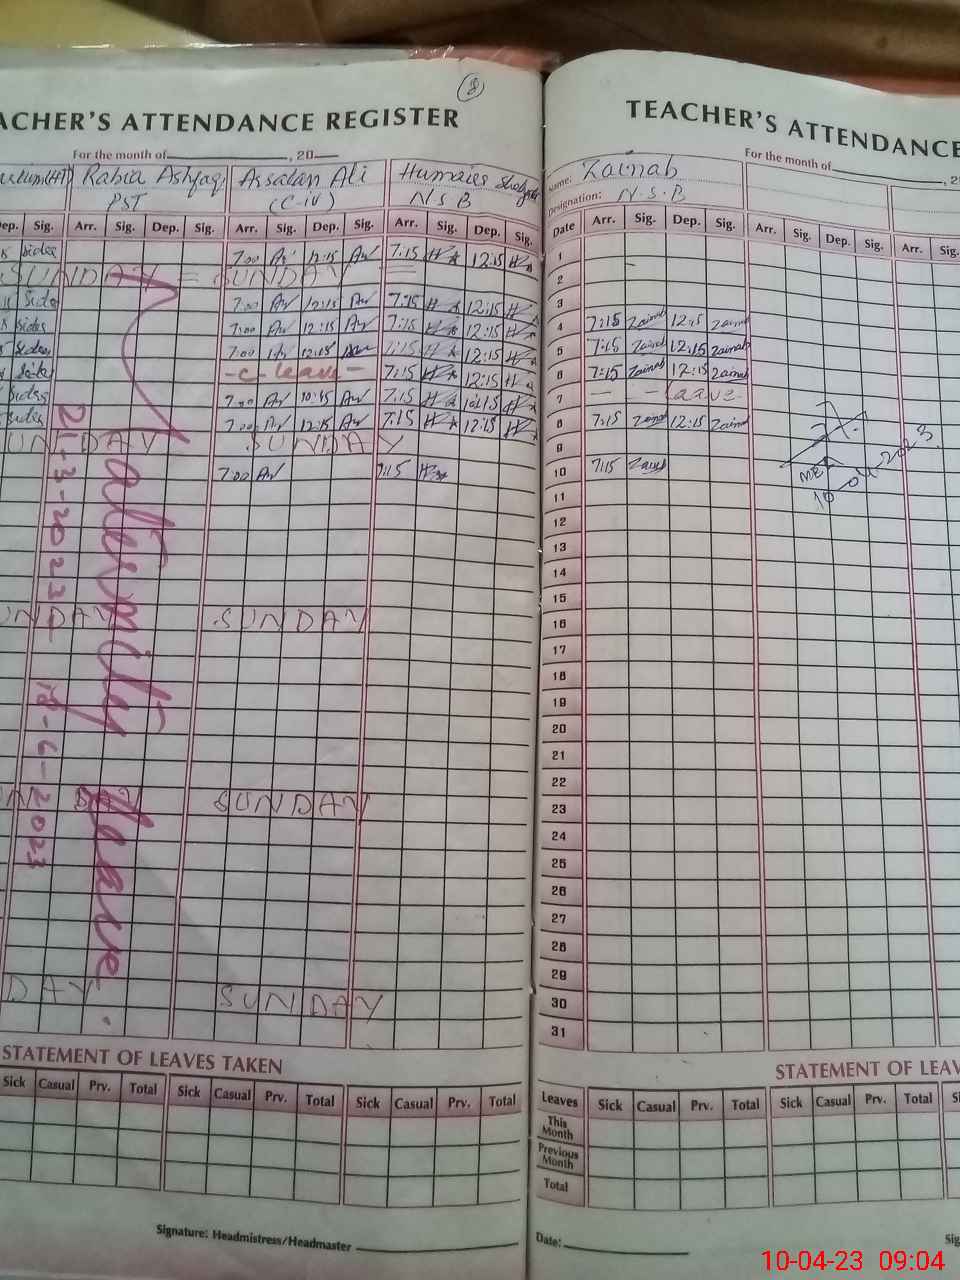 8
ACHER'S ATTENDANCE REGISTER
For the month of , 20
Rabia Ashfaq Arsalan Ali Humaira
PST (C-iv) N S B
Dep. Sig. Arr. Sig. Dep. Sig. Arr. Sig. Dep. Sig. Arr. Sig. Dep. Sig.
7:00 12:15 7:15 12:15
SUNDAY = SUNDAY =
7:00 12:15 7:15 12:15
7:00 12:15 7:15 12:15
7:00 12:15 7:15 12:15
- C - leave - 7:15 12:15
7:00 10:45 7:15 10:45
7:00 12:15 7:15 12:15
UNDAY SUNDAY
7:00 7:15
UNDAY SUNDAY
SUNDAY
DAY SUNDAY
Maternity Leave.
21-3-2023
18-6-2023
STATEMENT OF LEAVES TAKEN
Sick Casual Prv. Total Sick Casual Prv. Total Sick Casual Prv. Total
Signature: Headmistress/Headmaster
TEACHER'S ATTENDANCE
For the month of , 2
Name: Zainab
Designation: N.S.B
Date Arr. Sig. Dep. Sig. Arr. Sig. Dep. Sig. Arr. Sig.
1
2
3
4 7:15 Zainab 12:15 Zainab
5 7:15 Zainab 12:15 Zainab
6 7:15 Zainab 12:15 Zainab
7 - - Leave-
8 7:15 Zainab 12:15 Zainab
9
10 7:15 Zainab
MEA
10-04-2023
11
12
13
14
15
16
17
18
19
20
21
22
23
24
25
26
27
28
29
30
31
STATEMENT OF LEAV
Leaves Sick Casual Prv. Total Sick Casual Prv. Total Si
This Month
Previous Month
Total
Date: Sig
10-04-23 09:04